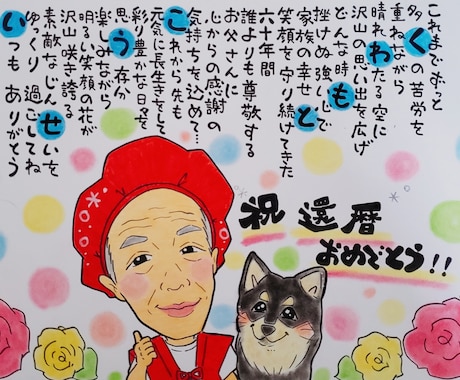 これまでずっと
多くの苦労を
重ねながら
晴れわたる空に
沢山の思い出を広げ
どんな時も
挫けぬ強い心で
家族の幸せと
笑顔を守り続けてきた
六十年間
誰よりも尊敬する
お父さんに
心からの感謝の
気持ちを込めて…
これから先も
元気に長生きをして
彩り豊かな日々を
思う存分
楽しみながら
明るい笑顔の花が
沢山咲き誇る
素敵なじんせいを
ゆっくり過ごしてね
いつもありがとう
祝還暦
おめでとう!!